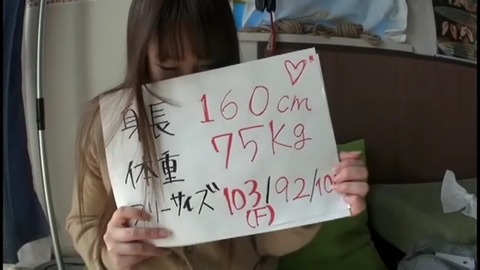 身長 160cm
体重 75kg
リーサイズ 103/92/10
(F)